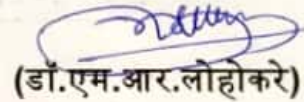 (डॉ.एम.आर.लोहोकरे)